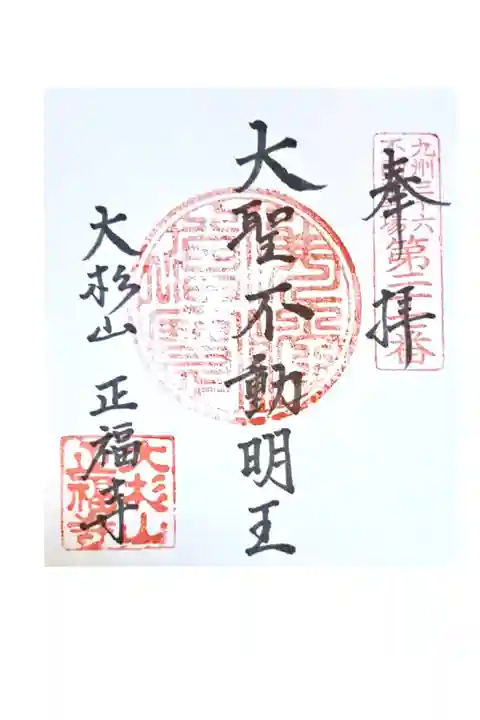 奉拝
九州三十六
不動
第二
番
大聖不動明王
大杉山 正福寺
大杉山
正福寺